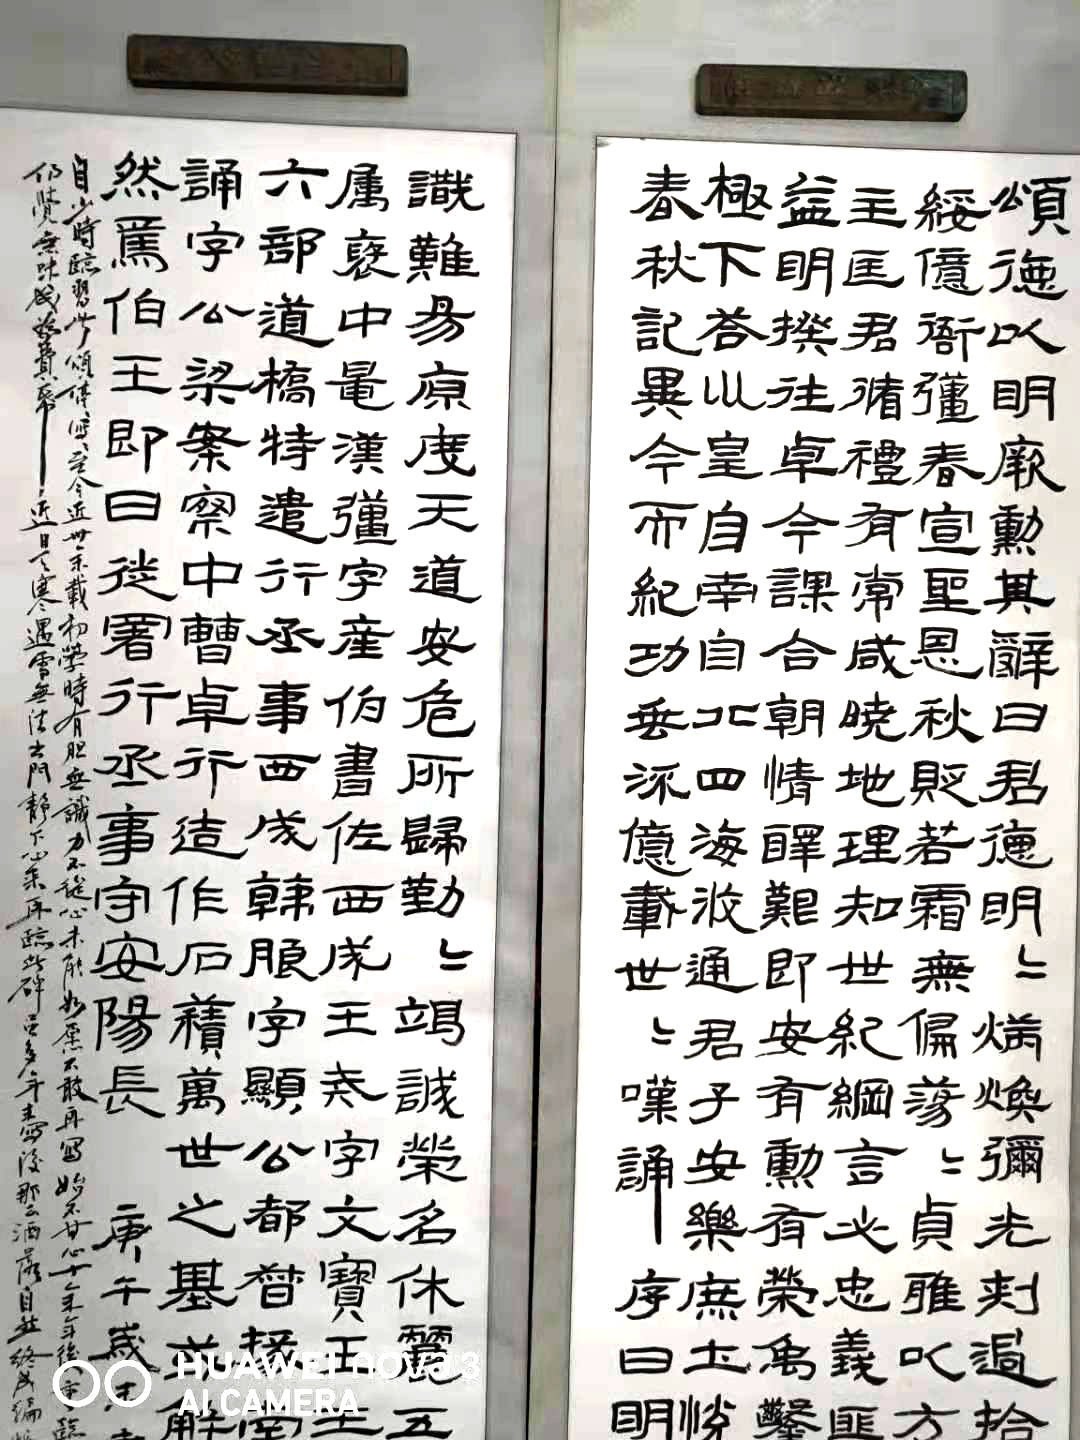 頌德以明厥勳其辭曰君德明〻煥彌光刺過拾
綏億衙彊春宣聖恩秋貶若霜無偏蕩〻貞雅以方
王匡君循禮有常咸曉地理知世紀綱言必忠義匪
益明揆往卓今謀合朝情醳艱即安有勳有榮禹鑿
極下荅以皇自南自北四海攸通君子安樂庶士悅
春秋記異今而紀功垂流億載世〻嘆誦序曰明
識難易原度天道安危所歸勤〻竭誠榮名休麗五
属褒中鼂漢彊字産伯書佐西成王戒字文寶王主
六部道橋特遣行丞事西成韓朖字顯公都督掾南
誦字公梁案察中曹卓行造作石積萬世之基或解
然焉伯王即日徙署行丞事守安陽長 庚午歲
自少時臨習此頌 至今近卅余載初學時有胆無識力不從心未能如願不敢再寫始不甘心十余年後
近日天寒遇雪無法出門靜下心來再臨此碑
HUAWEI nova 3
AI CAMERA